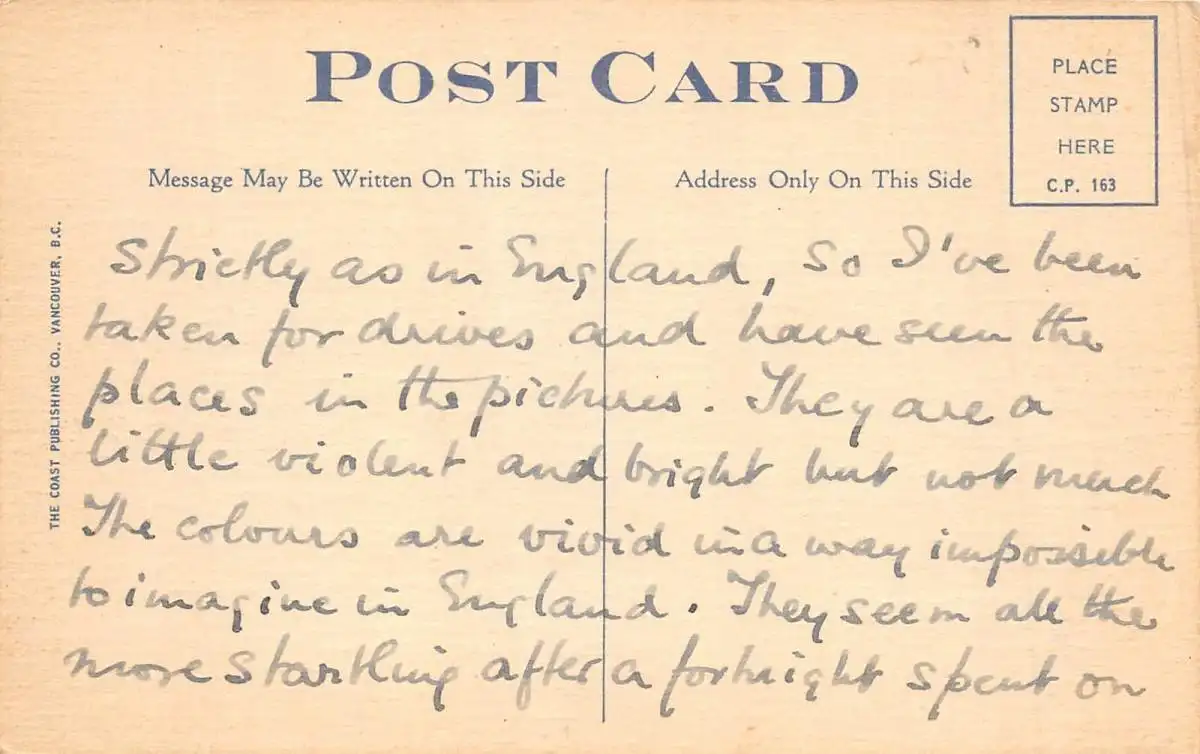 POST CARD
PLACE
STAMP
HERE
C.P. 163
Message May Be Written On This Side
Address Only On This Side
THE COAST PUBLISHING CO., VANCOUVER, B.C.
Strictly as in England, so I've been
taken for drives and have seen the
places in the pictures. They are a
little violent and bright but not much
The colours are vivid in a way impossible
to imagine in England. They seem all the
more startling after a fortnight spent on